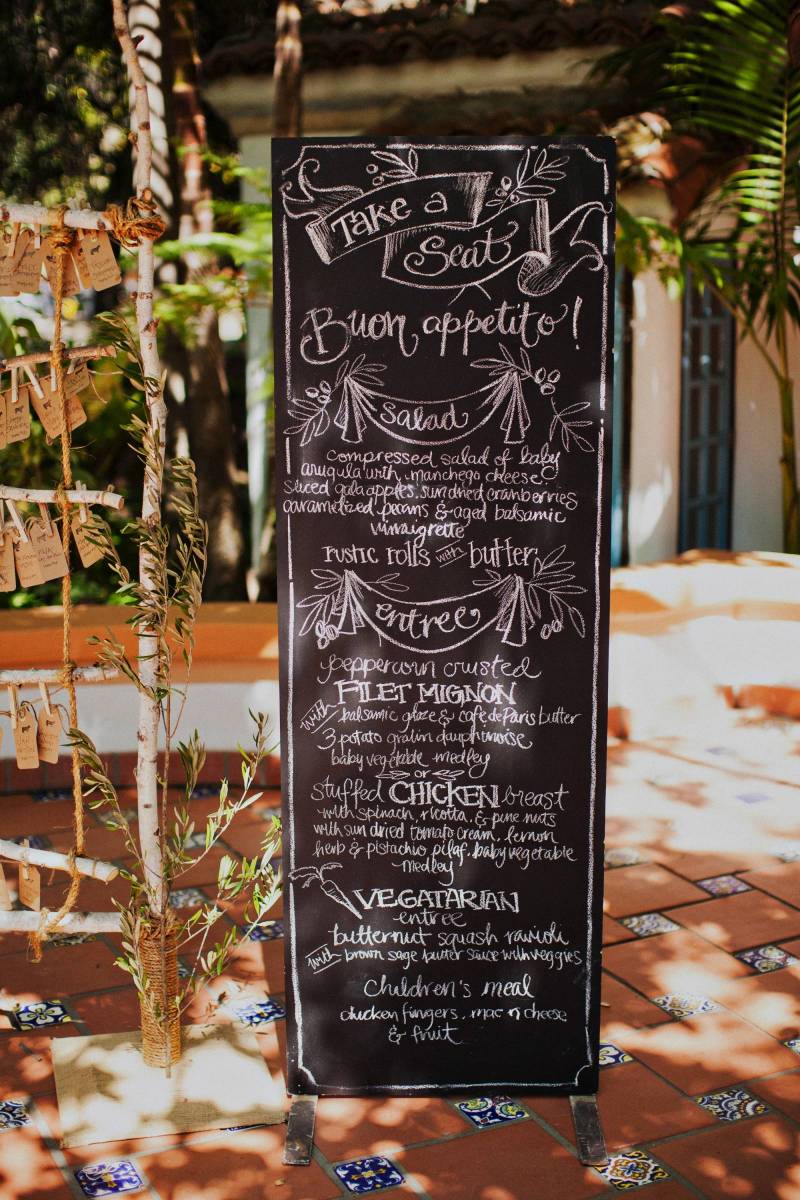 Take a
Seat
Buon appetito!
salad
compressed salad of baby
arugula with, manchego cheese
sliced gala apples, sun dried cranberries
caramelized pecans & aged balsamic
vinaigrette
rustic rolls with butter
entree
peppercorn crusted
FILET MIGNON
with balsamic glaze & cafe de Paris butter
3 potato gratin dauphinoise
baby vegetable medley
or
stuffed CHICKEN breast
with spinach, ricotta, & pine nuts
with sun dried tomato cream, lemon
herb & pistachio pilaf, baby vegetable
medley
VEGATARIAN
entree
butternut squash ravioli
with brown sage butter sauce with veggies
children's meal
chicken fingers, mac n cheese
& fruit